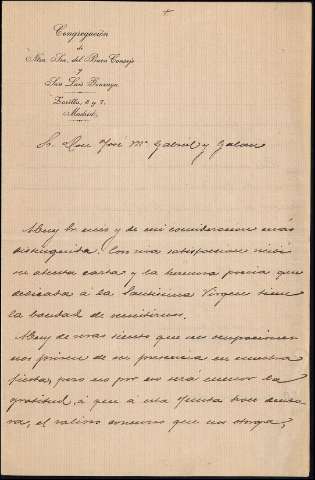 +
Congregación
de
Ntra. Sra. del Buen Consejo
y
San Luis Gonzaga
Zorilla, 5 y 7.
Madrid.
S. Don José Mª Gabriel y Galan
Muy Sr mio y de mi consideracion más
distinguida: Con viva satisfaccion recibí
su atenta carta y la hermosa poesia que
dedicada á la Santisima Virgen tiene
la bondad de remitirnos.
Muy de veras siento que sus ocupaciones
nos priven de su presencia en nuestra
fiesta, pero no por eso será menor la
gratitud, á que á esta Junta hace
el valioso concurso que nos otorga,